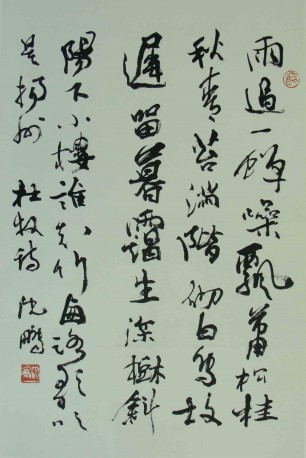 雨過一蟬噪飄蕭松桂
秋青苔滿階砌白鳥故
遲留暮靄生深樹斜
陽下小樓誰知竹西路歌吹
是揚州 杜牧詩 沈鵬